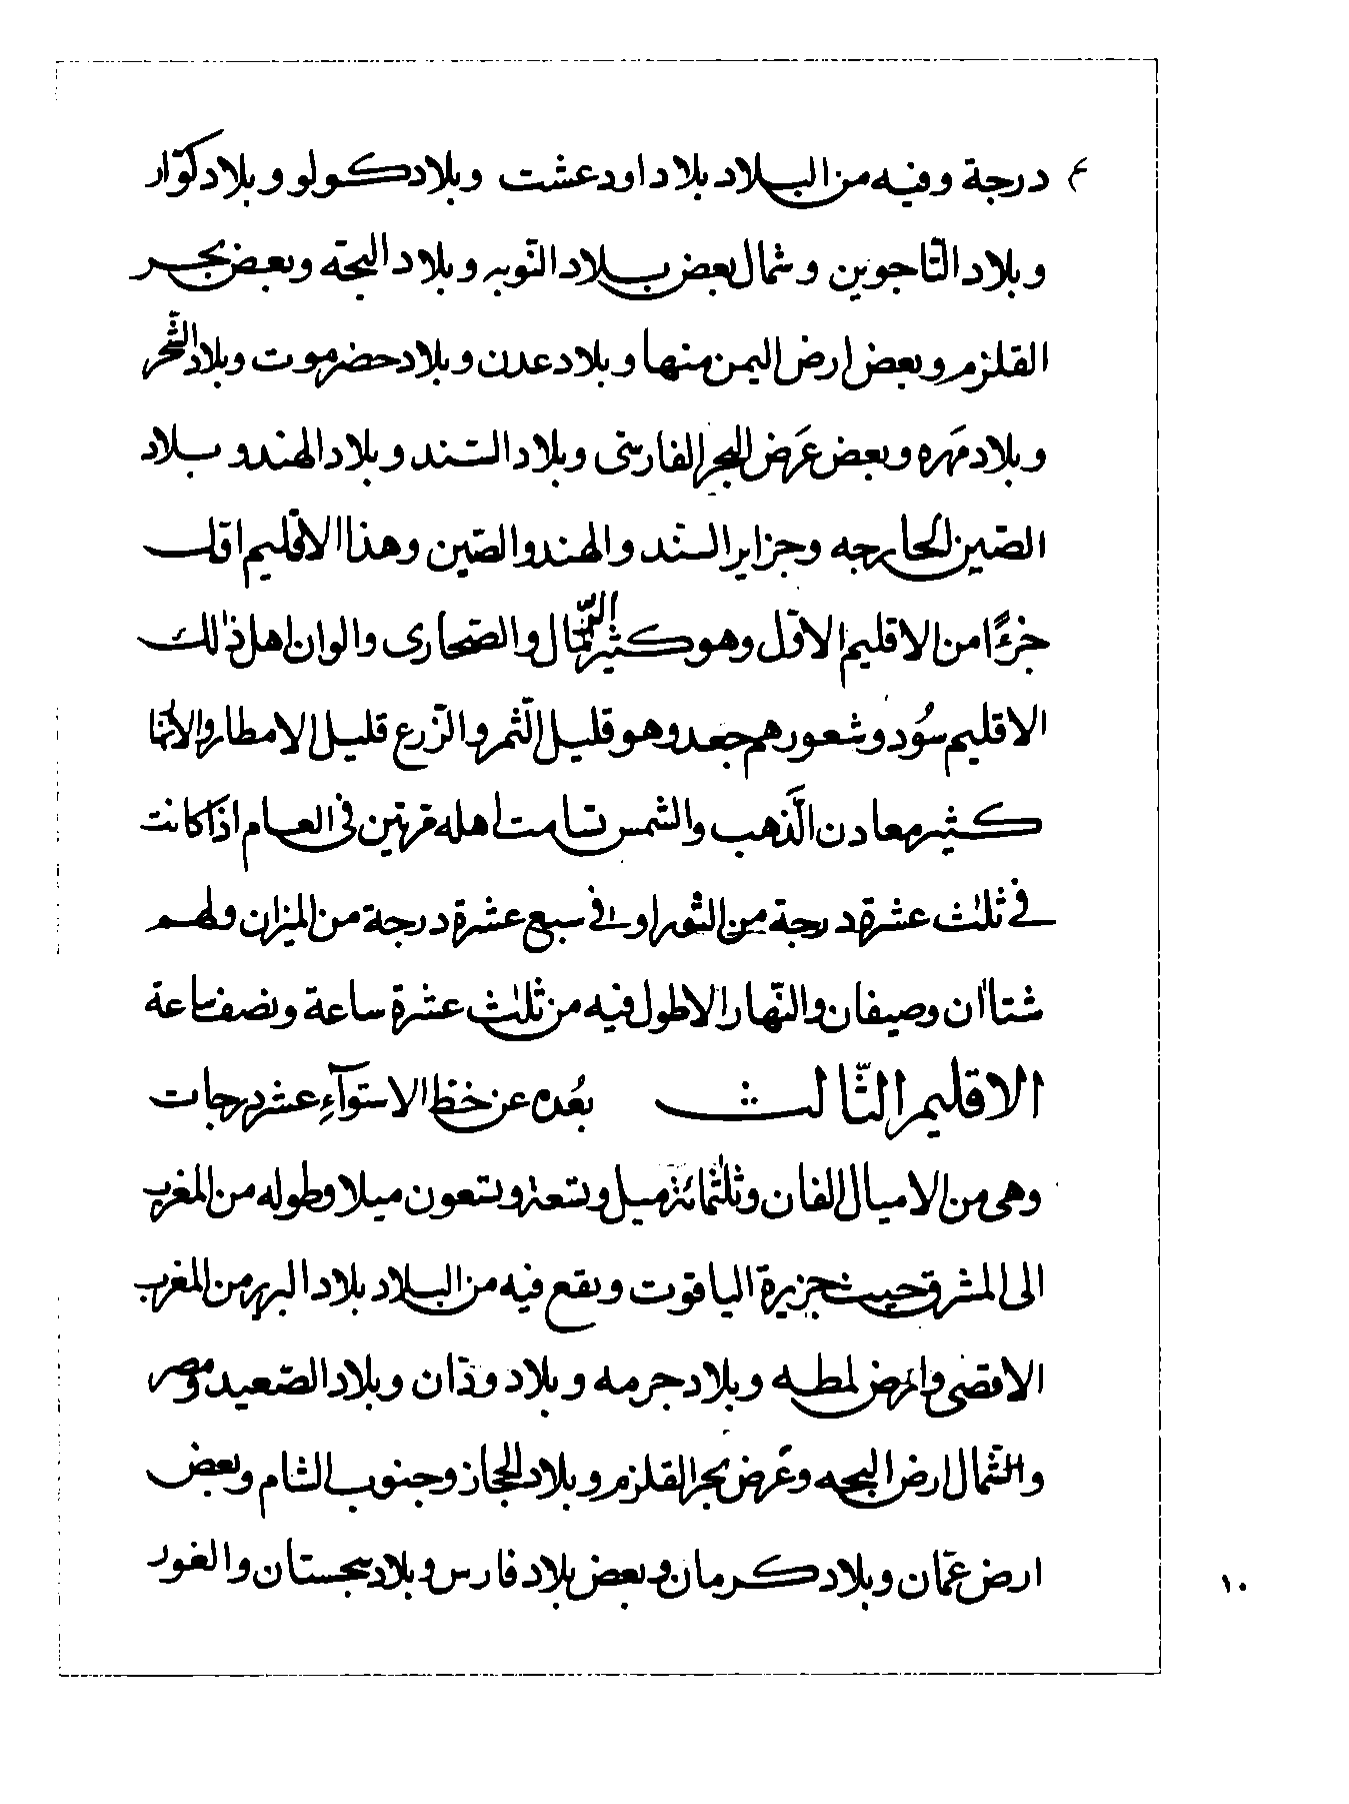 درجة وفيه من البلاد بلاد اودعشت وبلاد كولو وبلاد كوّار
وبلاد التّاجوين وشمال بعض بلاد النّوبه وبلاد البجة وبعض بحر
القلزم وبعض ارض اليمن منها وبلاد عدن وبلاد حضرموت وبلاد الشّحر
وبلاد مَهره وبعض عَرض البحر الفارسى وبلاد السّند وبلاد الهند وبلاد
الصّين الخارجه وجزاير السّند والهند والصّين وهذا الاقليم اقل
جزءًا من الاقليم الاوّل وهو كثير الرّمال والصّحارى والوان اهل ذٰلك
الاقليم سُود وشعورهم جعد وهو قليل الثّمر والزّرع قليل الامطار والانها
كثير معادن الذّهب والشمس تسامت اهله مرتين فى العام اذا كانت
فى ثلٰث عشرة درجة من الثور او فى سبع عشرة درجة من الميزان ولهم
شتاان وصيفان والنّهار الاطول فيه من ثلٰث عشرة ساعة ونصف ساعة
الاقليم الثّالث بعُده عن خط الاستوآءِ عشر درجات
وهى من الاميال الفان وثلٰثمائة ميل وتسعة وتسعون ميلا وطوله من المغرب
الى المشرق حيث جزيرة الياقوت ويقع فيه من البلاد بلاد البربر من المغرب
الاقصى وارض لمطه وبلاد جرمه وبلاد ودّان وبلاد الصّعيد ومصر
والشّمال ارض البجه وعَرض بحر القلزم وبلاد الحجاز وجنوب الشام وبعض
ارض عمّان وبلاد كرمان وبعض بلاد فارس وبلاد سجستان والغور
١٠